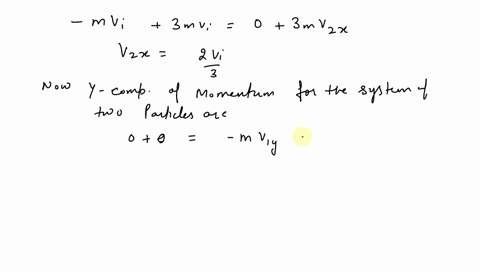 - m Vi + 3 m vi = 0 + 3 m V2x
V2x = 2 Vi / 3
Now Y- comp. of Momentum for the system of
two Particles are
0 + 0 = - m V1y